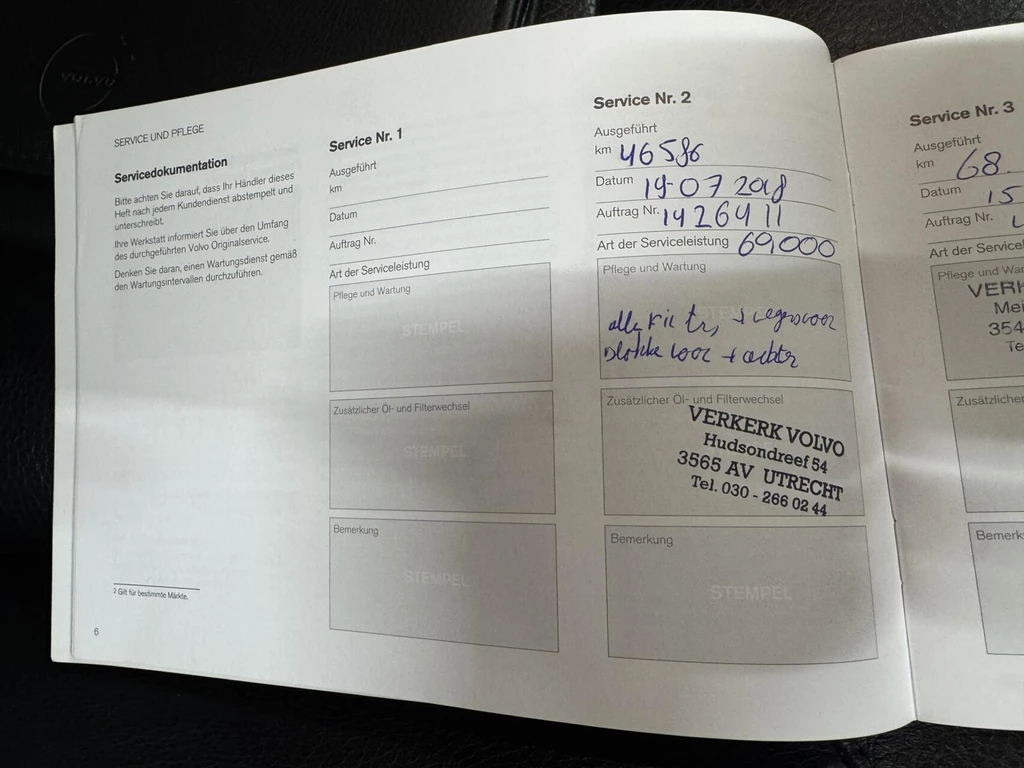 VOLVO
SERVICE UND PFLEGE
Servicedokumentation
Bitte achten Sie darauf, dass Ihr Händler dieses
Heft nach jedem Kundendienst abstempelt und
unterschreibt.
Ihre Werkstatt informiert Sie über den Umfang
des durchgeführten Volvo Originalservice.
Denken Sie daran, einen Wartungsdienst gemäß
den Wartungsintervallen durchzuführen.
2 Gilt für bestimmte Märkte.
6
Service Nr. 1
Ausgeführt
km
Datum
Auftrag Nr.
Art der Serviceleistung
Pflege und Wartung
STEMPEL
Zusätzlicher Öl- und Filterwechsel
STEMPEL
Bemerkung
STEMPEL
Service Nr. 2
Ausgeführt
km 46586
Datum 19-07 2018
Auftrag Nr. 1426411
Art der Serviceleistung 69.000
Pflege und Wartung
STEMPEL
alle
voor + achter
Zusätzlicher Öl- und Filterwechsel
VERKERK VOLVO
Hudsondreef 54
3565 AV UTRECHT
Tel. 030 - 266 02 44
Bemerkung
STEMPEL
Service Nr. 3
Ausgeführt
km 68.
Datum 15
Auftrag Nr.
Art der Servicel
Pflege und War
VERK
Mei
354
Te
Zusätzlicher
Bemerk